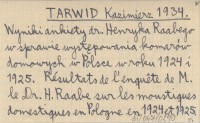 TARWID Kazimierz 1934.
Wyniki ankiety dr. Henryka Raabego
w sprawie występowania komarów
domowych w Polsce w roku 1924 i
1925. Résultats de l'enquête de M.
le Dr. H. Raabe sur les moustiques
domestiques en Pologne en 1924 et 1925.